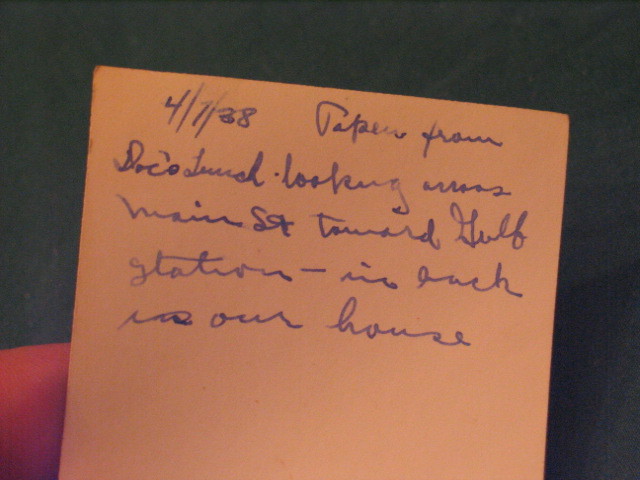 4/7/38 Taken from
Doc's Lunch - looking across
Main St toward Gulf
station - in back
is our house